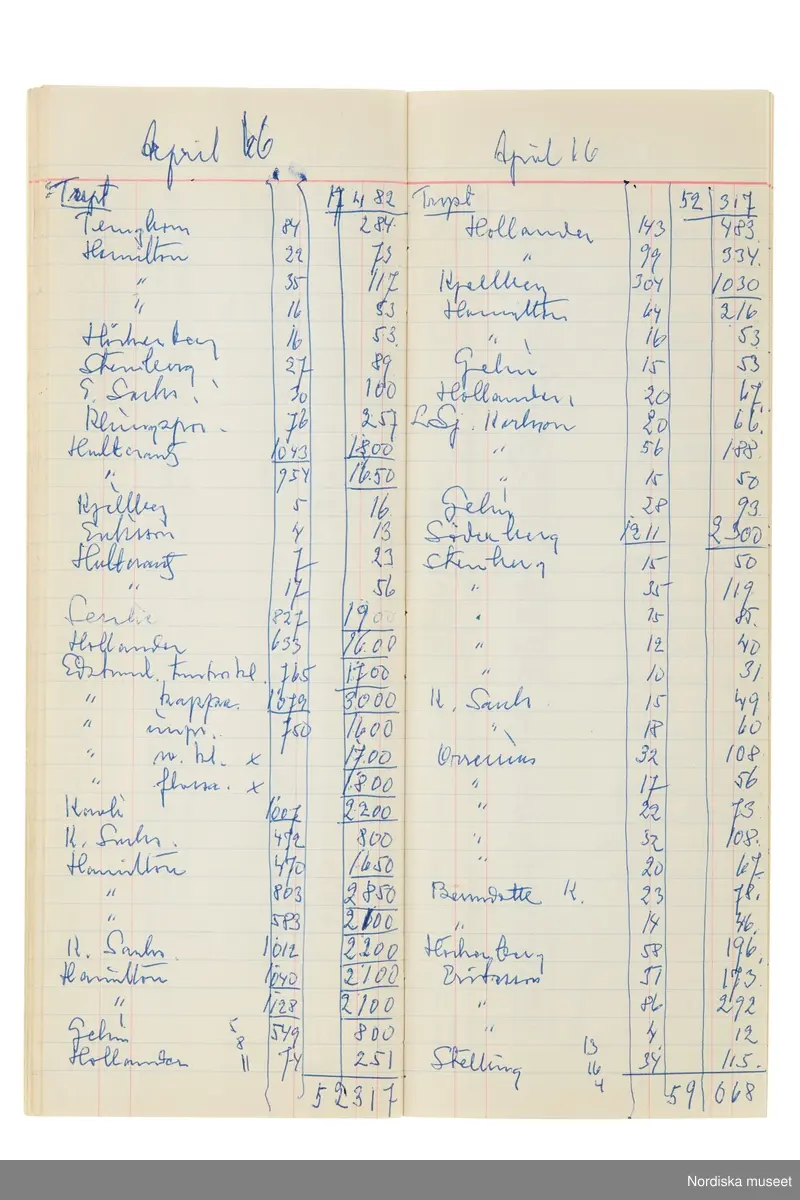 April 66
Trspt 17 482
Tenghom 84 284.
Hamilton 22 73
" 35 117
" 16 53
16 53.
Stenberg 27 89
E. Sachs 30 100
76 257
Hultcrantz 1043 1800
" 954 1650
Kjellberg 5 16
Eriksson 4 13
Hultcrantz 7 23
" 17 56
827 1900
Hollander 633 1600
765 1700
" kappa. 1079 3000
" impr. 750 1600
" kl. x 1700
" x 1800
1007 2200
K. Sachs. 492 800
Hamilton 470 1650
" 803 2850
" 583 2100
K. Sachs. 1012 2200
Hamilton 1040 2100
" 1128 2100
Gehin 5 549 800
8
Hollander 11 74 251
52317
April 66
Trspt 52 317
Hollander 143 483.
" 99 334.
Kjellberg 304 1030
Hamilton 64 216
" 16 53
Gehin 15 53
Hollander 20 67.
Karlson 20 66.
" 56 188.
" 15 50
Gehin 28 93.
Söderberg 1211 2300
Stenberg 15 50
" 35 119
" 85.
" 12 40
" 10 31
K. Sachs 15 49
" 18 60
32 108
" 17 56
" 22 73
" 32 108.
" 20 67
Bernadotte K. 23 78.
" 14 46.
58 196.
Eriksson 51 173.
" 86 292
" 4 12
13
Stelling 16 34 115.
4
59 668
Nordiska museet